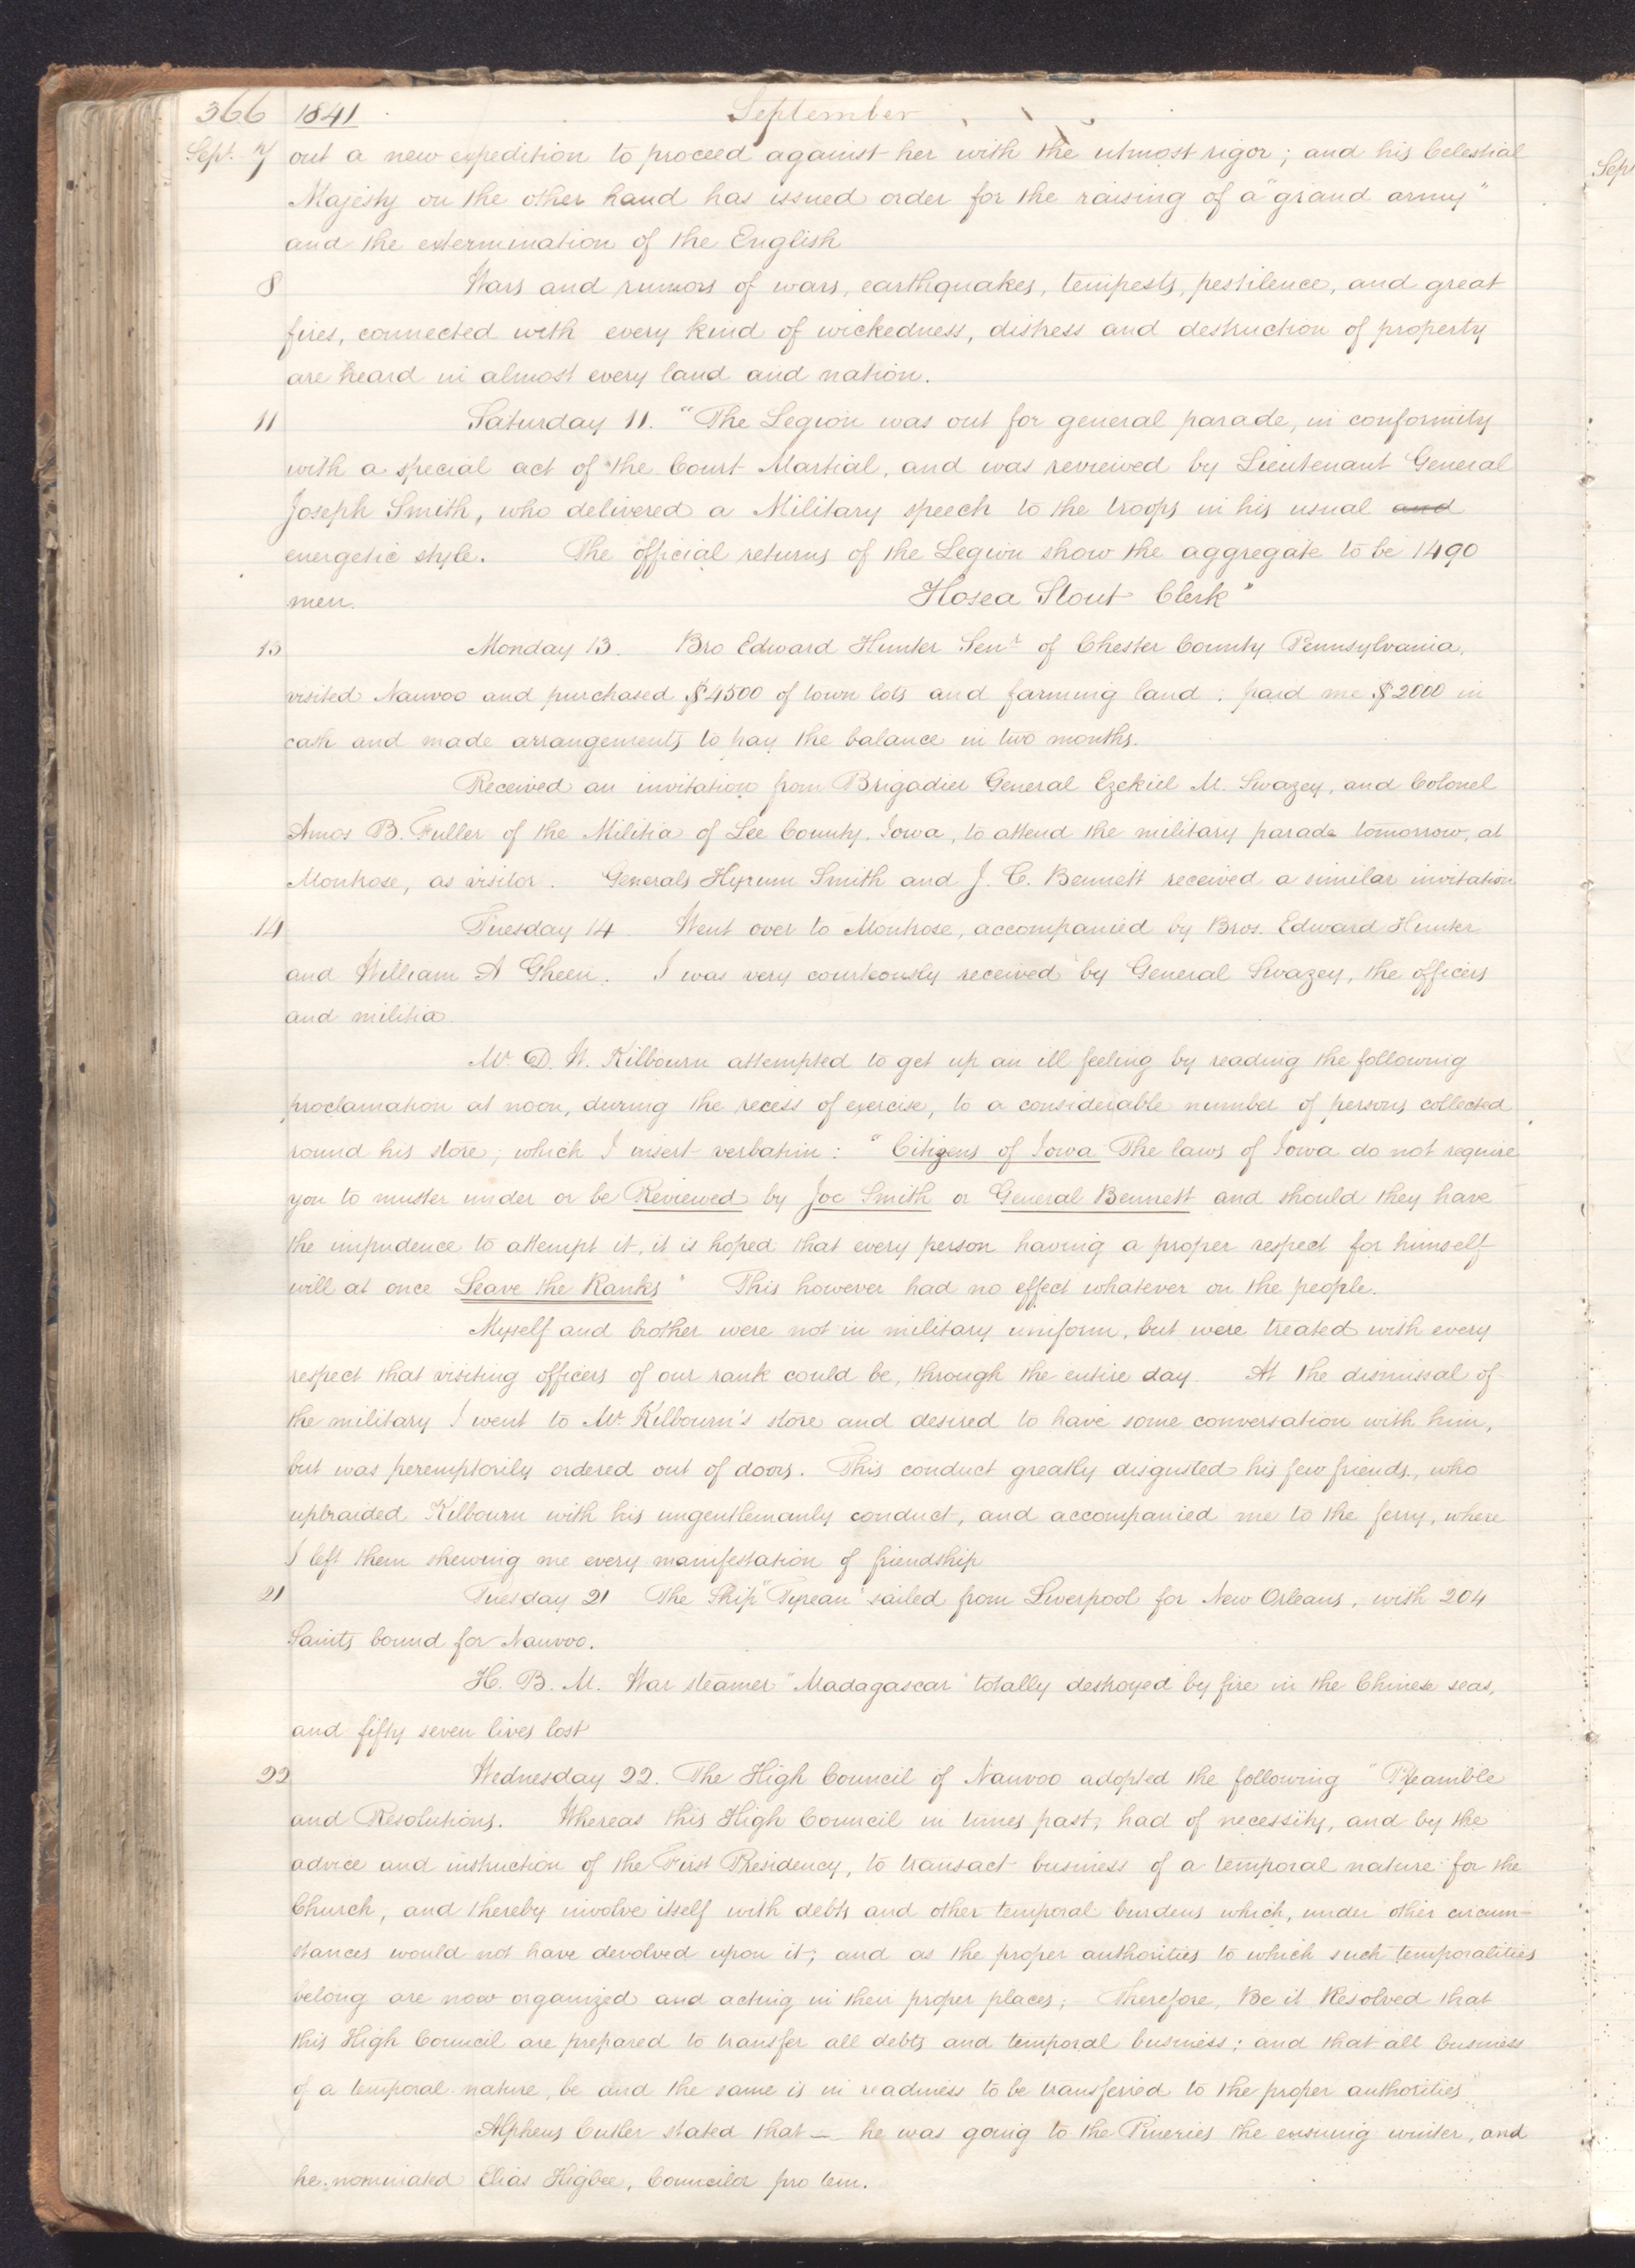 366 1841 September
Sept. 7 out a new expedition to proceed against her with the utmost rigor; and his Celestial
Majesty on the other hand has issued order for the raising of a "grand army"
and the extermination of the English
8 Wars and rumors of wars, earthquakes, tempests, pestilence, and great
fires, connected with every kind of wickedness, distress and destruction of property
are heard in almost every land and nation.
11 Saturday 11. "The Legion was out for general parade, in conformity
with a special act of the Court Martial, and was reviewed by Lieutenant General
Joseph Smith, who delivered a Military speech to the troops in his usual and
energetic style. The official returns of the Legion show the aggregate to be 1490
men. Hosea Stout Clerk"
13 Monday 13. Bro Edward Hunter Senr of Chester County Pennsylvania,
visited Nauvoo and purchased $4500 of town lots and farming land; paid me $2000 in
cash and made arrangements to pay the balance in two months.
Received an invitation from Brigadier General Ezekiel M. Swazey, and Colonel
Amos B. Fuller of the Militia of Lee County, Iowa, to attend the military parade tomorrow, at
Montrose, as visitor. Generals Hyrum Smith and J. C. Bennett received a similar invitation
14 Tuesday 14 Went over to Montrose, accompanied by Bros. Edward Hunter
and William A Gheen. I was very courteously received by General Swazey, the officers
and militia.
Mr. D. W. Kilbourn attempted to get up an ill feeling by reading the following
proclamation at noon, during the recess of exercise, to a considerable number of persons collected
round his store; which I insert verbatim: "Citizens of Iowa The laws of Iowa do not require
you to muster under or be Reviewed by Joe Smith or General Bennett and should they have
the impudence to attempt it, it is hoped that every person having a proper respect for himself
will at once Leave the Ranks" This however had no effect whatever on the people.
Myself and brother were not in military uniform, but were treated with every
respect that visiting officers of our rank could be, through the entire day. At the dismissal of
the military I went to Mr. Kilbourn's store and desired to have some conversation with him,
but was peremptorily ordered out of doors. This conduct greatly disgusted his few friends, who
upbraided Kilbourn with his ungentlemanly conduct, and accompanied me to the ferry, where
I left them shewing me every manifestation of friendship
21 Tuesday 21 The Ship "Tyrean" sailed from Liverpool for New Orleans, with 204
Saints bound for Nauvoo.
H. B. M. War steamer "Madagascar" totally destroyed by fire in the Chinese seas,
and fifty seven lives lost
22 Wednesday 22. The High Council of Nauvoo adopted the following "Preamble
and Resolutions. Whereas this High Council in times past, had of necessity, and by the
advice and instruction of the First Presidency, to transact business of a temporal nature for the
Church, and thereby involve itself with debts and other temporal burdens which, under other circum-
stances would not have devolved upon it; and as the proper authorities to which such temporalities
belong are now organized and acting in their proper places; Therefore, Be it Resolved that
this High Council are prepared to transfer all debts and temporal business; and that all business
of a temporal nature, be and the same is in readiness to be transferred to the proper authorities"
Alpheus Cutler stated that — he was going to the Pineries the ensuing winter, and
he nominated Elias Higbee, Councilor pro tem.
Sept